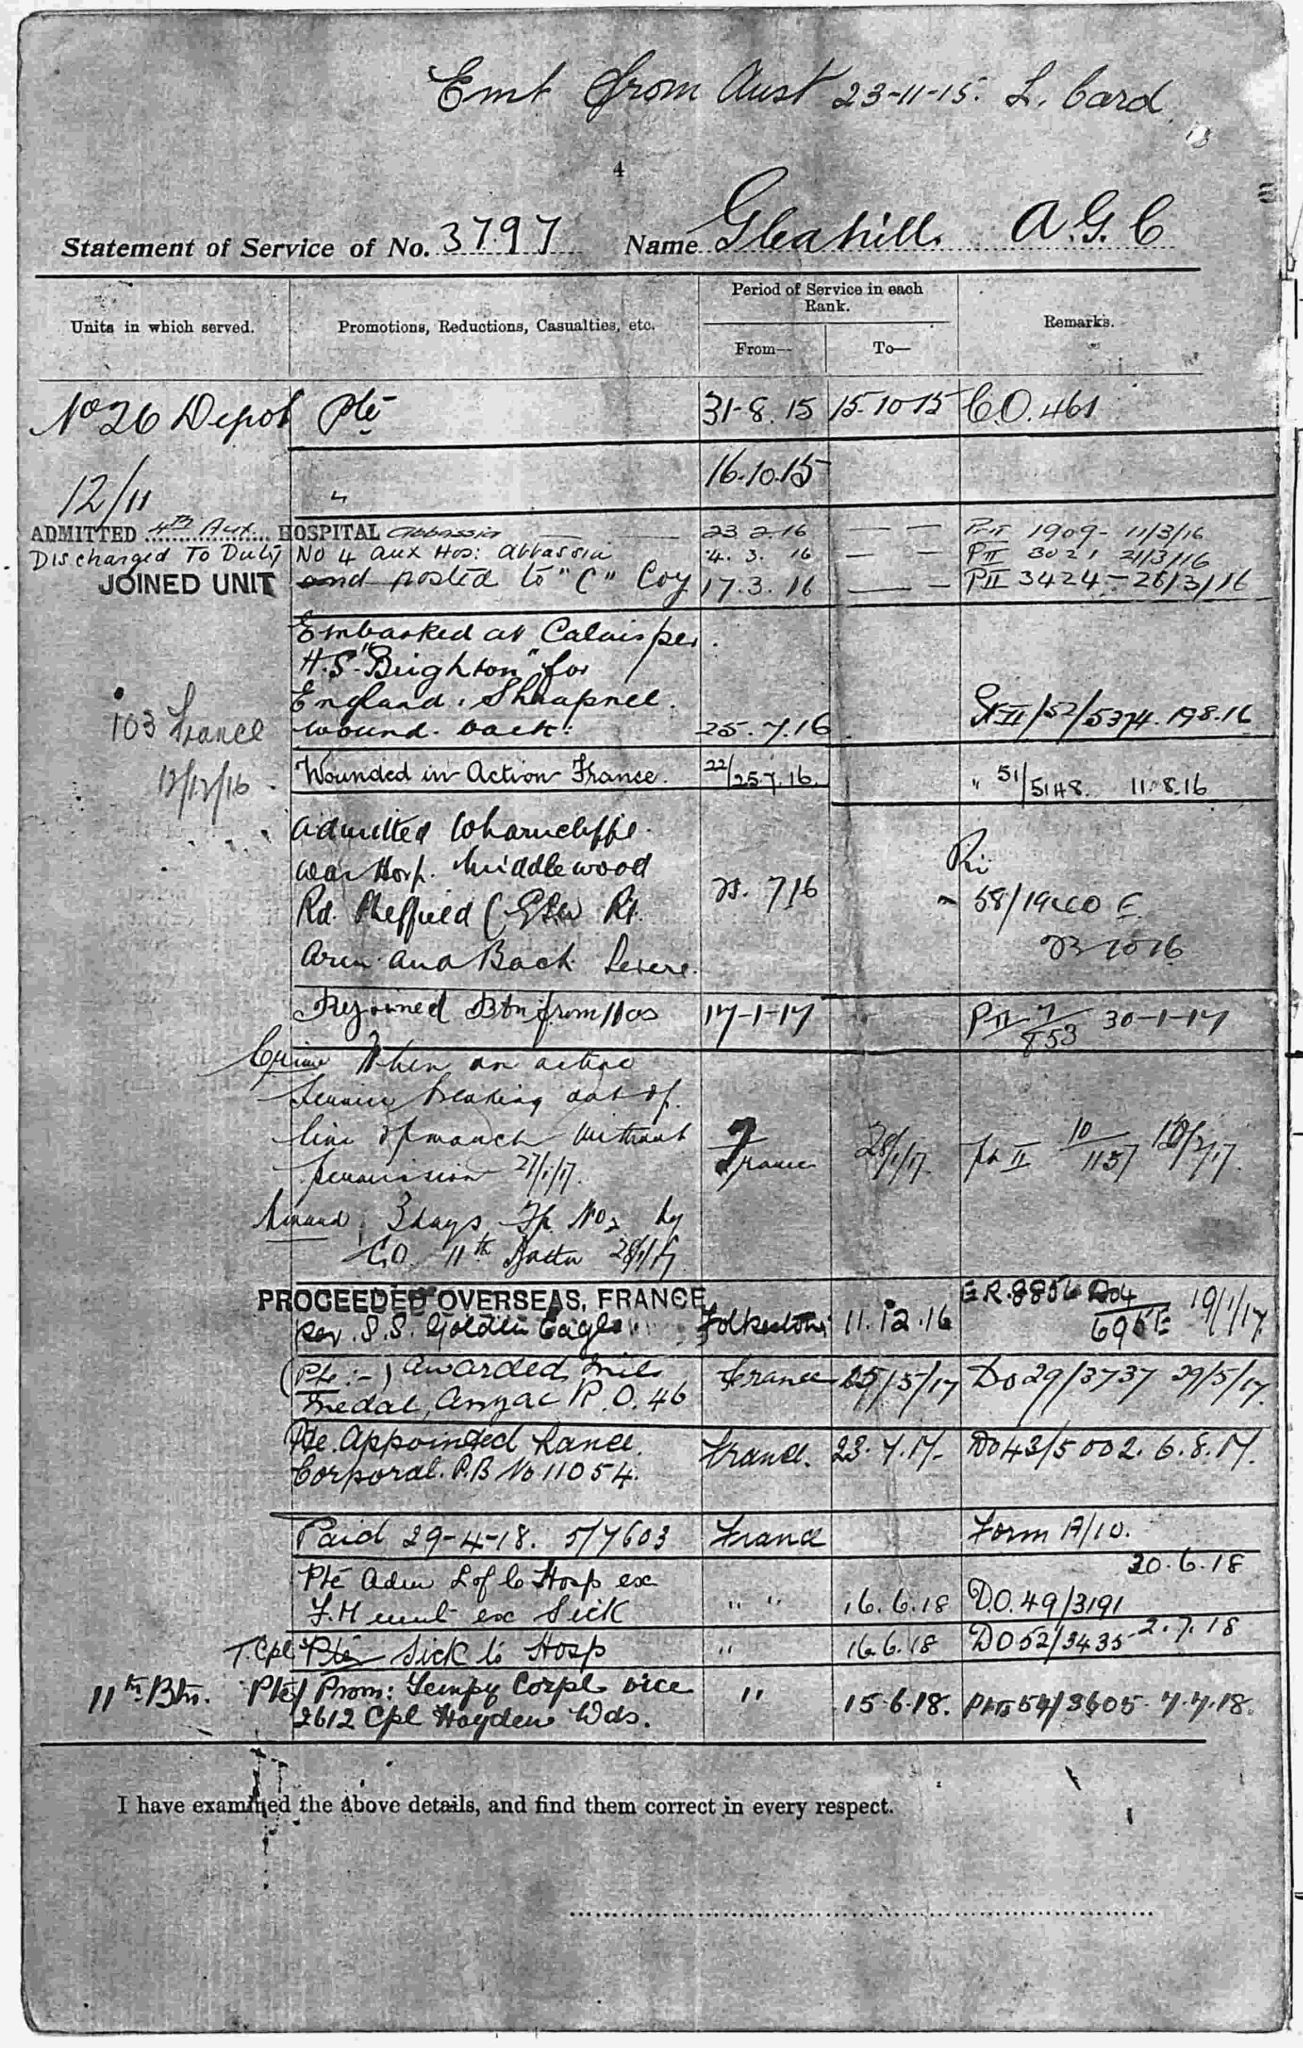 Emt from Aust 23-11-15. L. Card
4
Statement of Service of No. 3797 Name Gleahill. A.G.C
Units in which served. Promotions, Reductions, Casualties, etc. Period of Service in each Rank. Remarks.
From— To—
No 26 Depot Pte 31-8.15 15.10.15 C.O.461
12/11 " 16.10.15
ADMITTED 4th Aux. HOSPITAL Abbassia 23.2.16 — — Pt II 1909- 11/3/16
Discharged To Duty No 4 Aux Hos: Abbassia 4.3.16 — — P II 3021 21/3/16
JOINED UNIT and posted to "C" Coy 17.3.16 — — P II 3424-25/3/16
Embarked at Calais per
H.S. "Brighton" for
England. Shrapnel
103 France wound back. 25.7.16 II/52/5374. 19.8.16
12/12/16 Wounded in Action France. 22/25.7.16. " 51/5148. 11.8.16
admitted Wharncliffe
War Hosp. Middlewood
Rd. Sheffield (GSW Rt. 7 16 58/19
Arm and Back Severe
Rejoined Btn from Hos 17-1-17 P II 7/853 30-1-17
Crime When on active
Service breaking out of
line of march without France 28/1/17. Pt II 10/1157
permission 27/1/17.
Award 3 days Fp. No 2 by
C.O. 11th Battn 28/1/17
PROCEEDED OVERSEAS, FRANCE E.R.8856 DO4 19/1/17.
per S.S. Golden Eagle Folkestone 11.12.16
(Pte:-) awarded Mil France 25/5/17 DO 29/3737 29/5/17.
Medal, Anzac R.O. 46
Pte. Appointed Lance France. 23.7.17. DO 43/5002. 6.8.17.
Corporal. P.B No 11054.
Paid 29-4-18. 5/7603 France Form A/10.
Pte Adm L of C Hosp ex 20.6.18
F.H unit ex Sick " " 16.6.18 D.O.49/3191
T.Cpl Pte Sick to Hosp " 16.6.18 DO 52/3435 2.7.18
11th Btn. Pte/ Prom: Tempy Corpl vice " 15.6.18. Pt II 54/3605 7.7.18.
2612 Cpl Hayden Wds.
I have examined the above details, and find them correct in every respect.